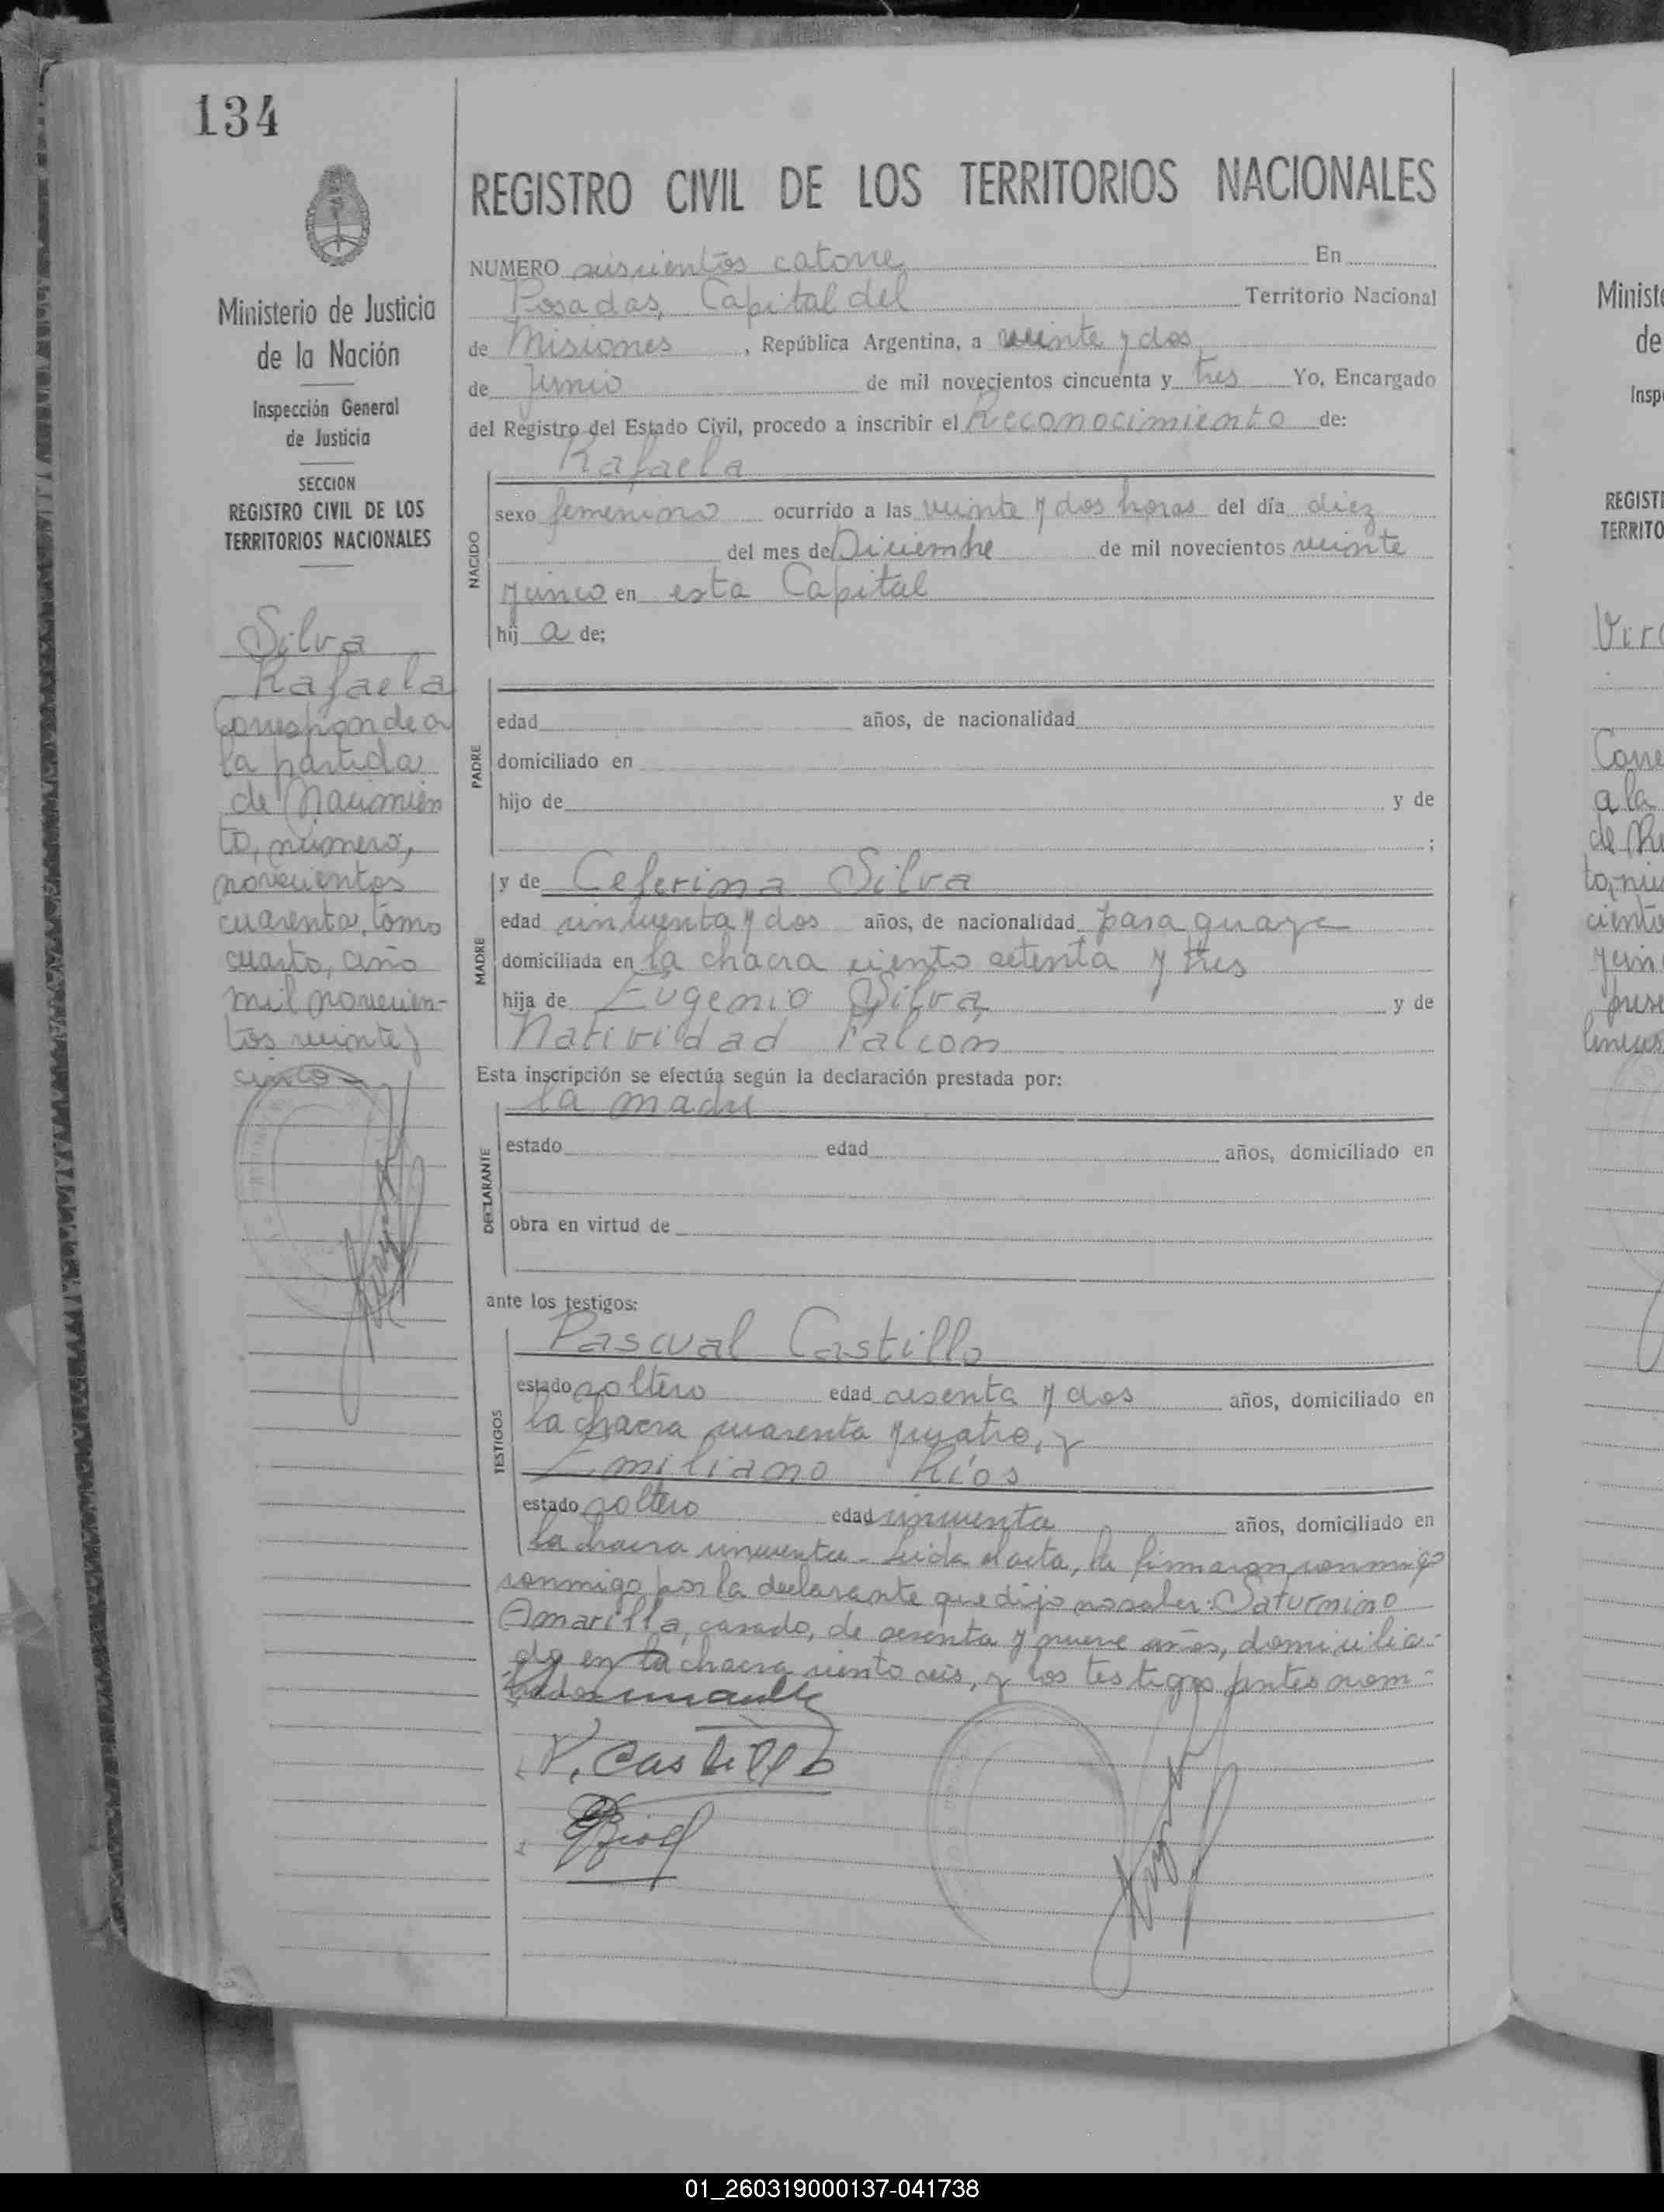 134
REGISTRO CIVIL DE LOS TERRITORIOS NACIONALES
Ministerio de Justicia
de la Nación
Inspección General
de Justicia
SECCION
REGISTRO CIVIL DE LOS
TERRITORIOS NACIONALES
Silva
Rafaela
Corresponde a
la partida
de Nacimien
to, número,
novecientos
cuarenta, tomo
cuarto, año
mil novecien-
tos veinte y
cinco
NUMERO seiscientos catorce En
Posadas, Capital del Territorio Nacional
de Misiones, República Argentina, a veinte y dos
de Junio de mil novecientos cincuenta y tres Yo, Encargado
del Registro del Estado Civil, procedo a inscribir el Reconocimiento de:
Rafaela
NACIDO
sexo femenino ocurrido a las veinte y dos horas del día diez
del mes de Diciembre de mil novecientos veinte
y cinco en esta Capital
hij a de;
PADRE
edad años, de nacionalidad
domiciliado en
hijo de y de
;
MADRE
y de Ceferina Silva
edad cincuenta y dos años, de nacionalidad paraguaya
domiciliada en la chacra ciento setenta y tres
hija de Eugenio Silva y de
Natividad Falcón
Esta inscripción se efectúa según la declaración prestada por:
la madre
DECLARANTE
estado edad años, domiciliado en
obra en virtud de
ante los testigos:
TESTIGOS
Pascual Castillo
estado soltero edad sesenta y dos años, domiciliado en
la chacra cuarenta y cuatro, y
Emiliano Ríos
estado soltero edad cincuenta años, domiciliado en
la chacra cincuenta - Leida el acta, la firmaron conmigo
conmigo por la declarante que dijo no saber: Saturnino
Amarilla, casado, de sesenta y nueve años, domicilia-
do en la chacra ciento seis, y los testigos antes nom-
brados
P. Castillo
E Rios
Minist
de
Insp
REGIST
TERRITO
a la
01_260319000137-041738